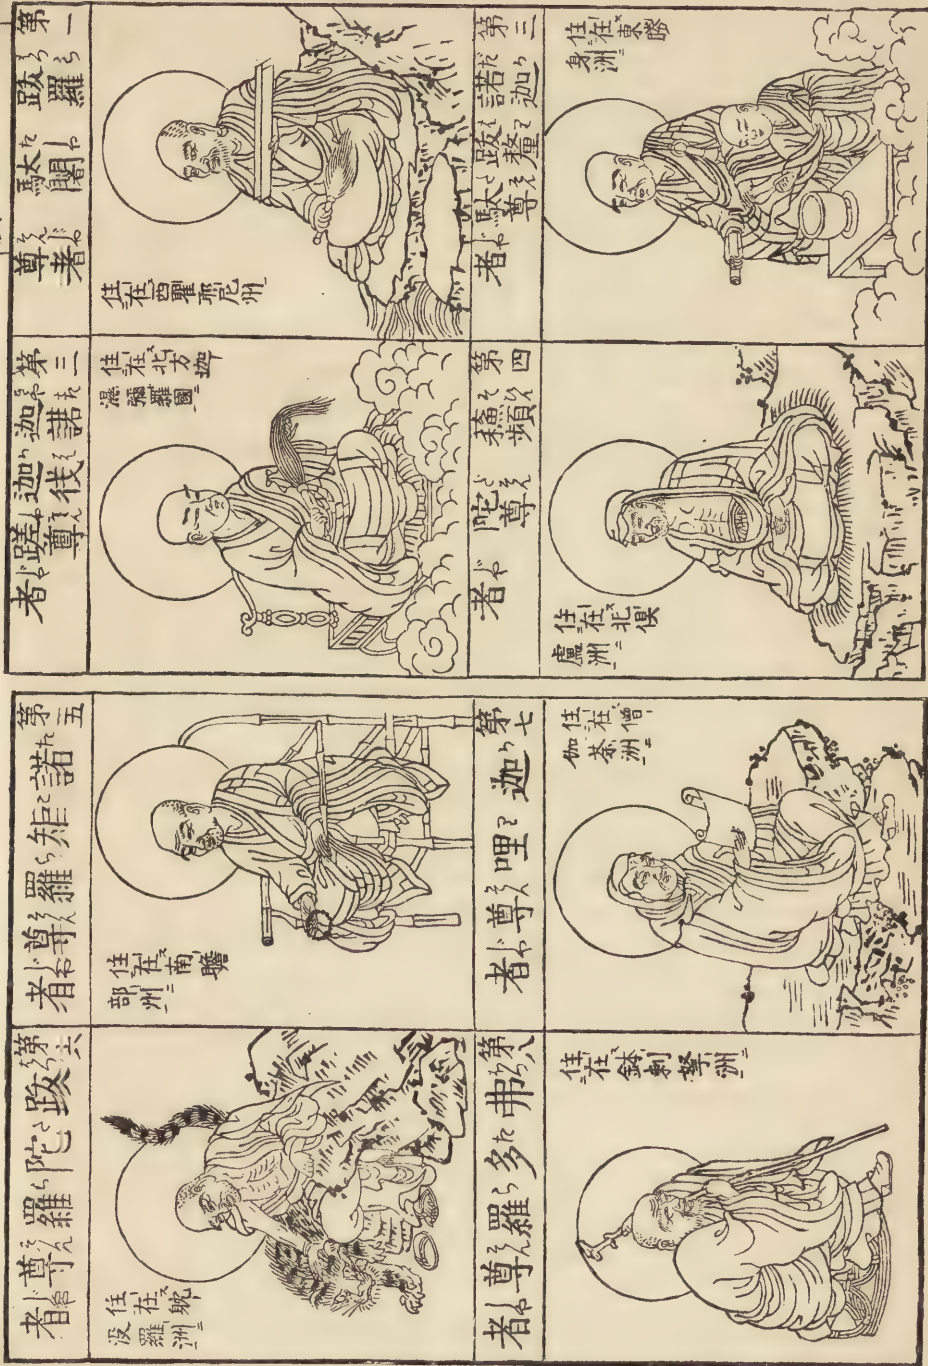 第一
跋羅
駄闍
尊者
住在西瞿耶尼州
第二
迦諾
迦伐
蹉尊
者
住在北方迦
濕彌羅國
第三
諾迦
跋釐
駄尊
者
住在東勝
身洲
第四
蘇頻
陀尊
者
住在北俱
盧洲
第五
諾矩羅尊者
住在南瞻
部洲
第六
跋陀羅尊者
住在躭
没羅洲
第七
迦哩尊者
住在僧
伽茶洲
第八
弗多羅尊者
住在鉢刺拏洲